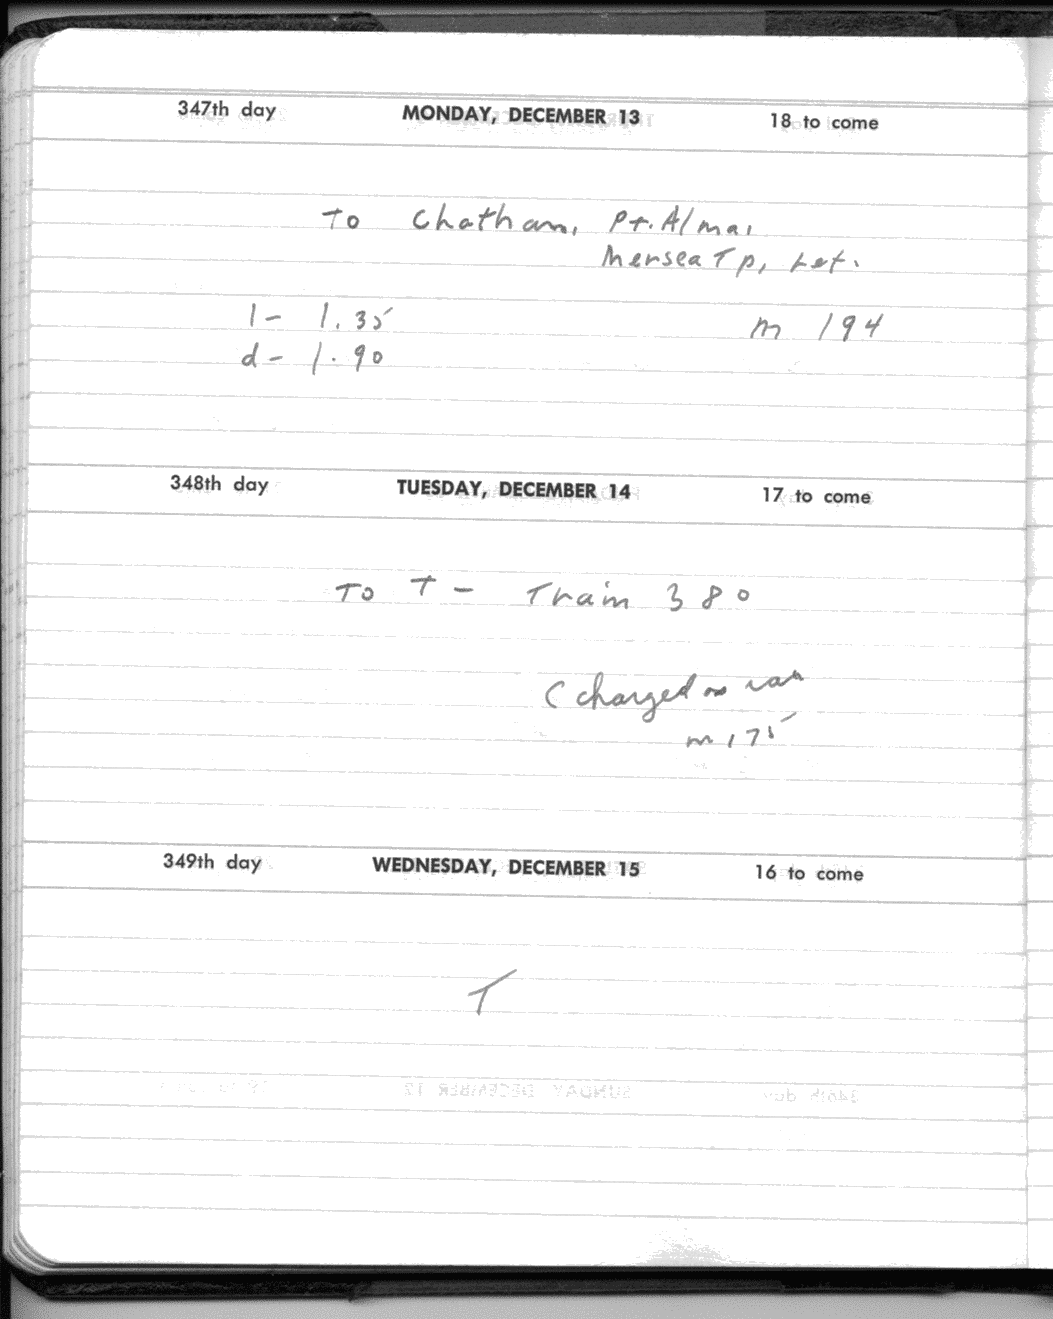 347th day MONDAY, DECEMBER 13 18 to come
To Chatham, Pt. Alma,
Mersea Tp, Ret.
l- 1.35 m 194
d- 1.90
348th day TUESDAY, DECEMBER 14 17 to come
To T - Train 380
(charged as
m 175
349th day WEDNESDAY, DECEMBER 15 16 to come
T